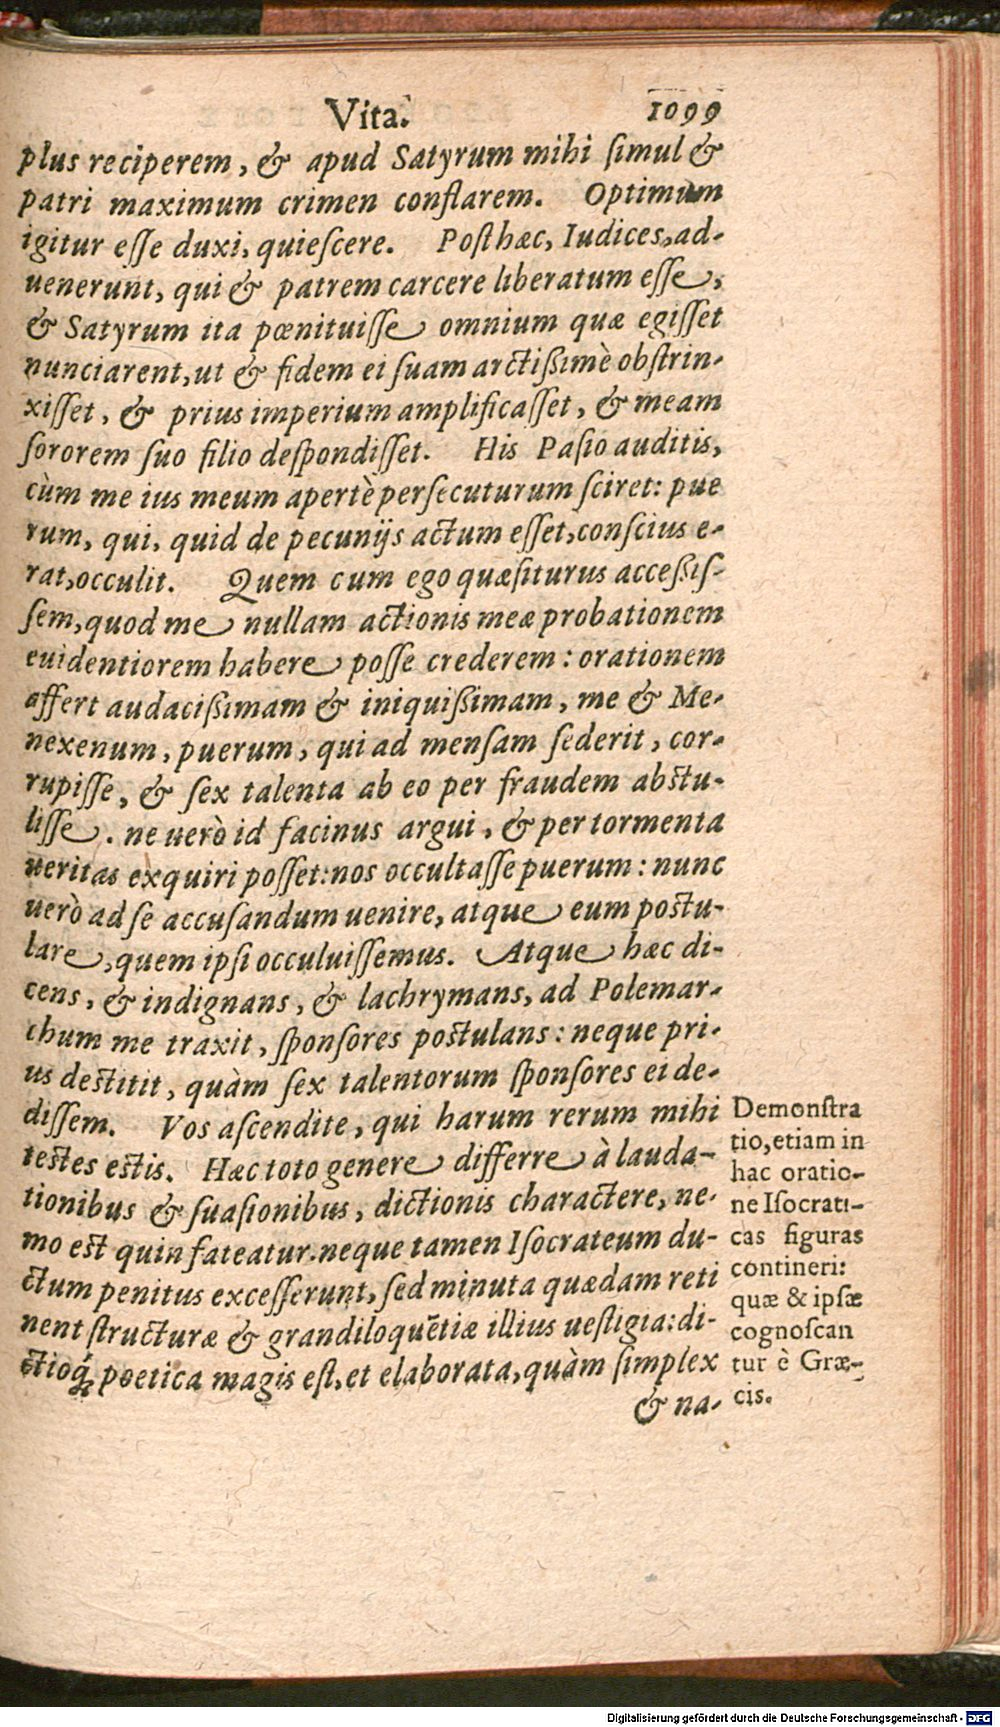 Vita. 1099
plus reciperem, & apud Satyrum mihi ſimul &
patri maximum crimen conflarem. Optimum
igitur eſſe duxi, quieſcere. Poſthæc, Iudices, ad-
uenerunt, qui & patrem carcere liberatum eſſe,
& Satyrum ita pœnituiſſe omnium quæ egiſſet
nunciarent, ut & fidem ei ſuam arctißimè obſtrin-
xiſſet, & prius imperium amplificaſſet, & meam
ſororem ſuo filio deſpondiſſet. His Paſio auditis,
cùm me ius meum apertè perſecuturum ſciret: pue
rum, qui, quid de pecunijs actum eſſet, conſcius e-
rat, occulit. Quem cum ego quæſiturus acceßiſ-
ſem, quod me nullam actionis meæ probationem
euidentiorem habere poſſe crederem: orationem
affert audacißimam & iniquißimam, me & Me-
nexenum, puerum, qui ad menſam ſederit, cor-
rupiſſe, & ſex talenta ab eo per fraudem abſtu-
liſſe. ne uerò id facinus argui, & per tormenta
ueritas exquiri poſſet: nos occultaſſe puerum: nunc
uerò ad ſe accuſandum uenire, atque eum poſtu-
lare, quem ipſi occuluiſſemus. Atque hæc di-
cens, & indignans, & lachrymans, ad Polemar-
chum me traxit, ſponſores poſtulans: neque pri-
us deſtitit, quàm ſex talentorum ſponſores ei de-
diſſem. Vos aſcendite, qui harum rerum mihi
teſtes eſtis. Hæc toto genere differre à lauda-
tionibus & ſuaſionibus, dictionis charactere, ne-
mo eſt quin fateatur. neque tamen Iſocrateum du-
ctum penitus exceſſerunt, ſed minuta quædam reti
nent ſtructuræ & grandiloquẽtiæ illius ueſtigia: di-
ctioq́; poetica magis eſt, et elaborata, quàm ſimplex
& na-
Demonſtra
tio, etiam in
hac oratio-
ne Iſocrati-
cas figuras
contineri:
quæ & ipſæ
cognoſcan
tur è Græ-
cis.
Digitalisierung gefördert durch die Deutsche Forschungsgemeinschaft - DFG